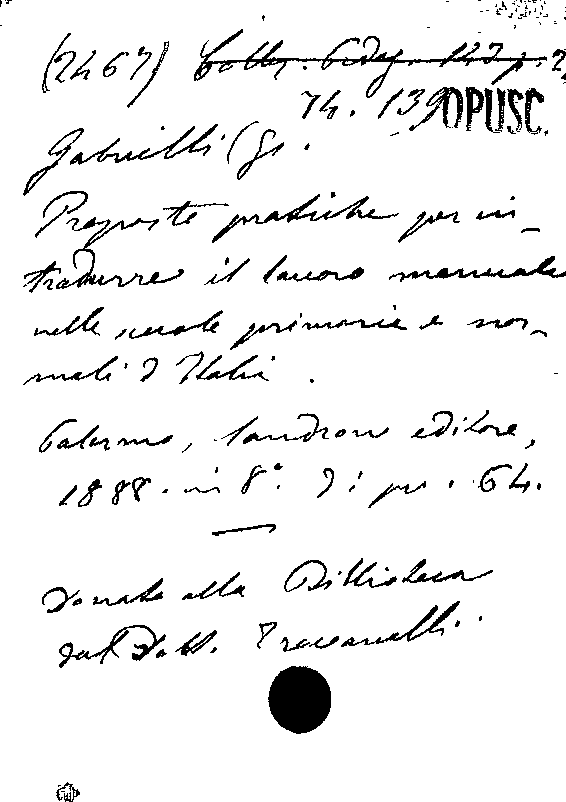 (2467)
74. 139 OPUSC.
Gabrielli (G.
Proposte pratiche per in-
trodurre il lavoro manuale
nelle scuole primarie e nor-
mali d'Italia.
Palermo, Sandron editore,
1888. in 8°. di pp. 64.
Donata alla Biblioteca
dal Dott.